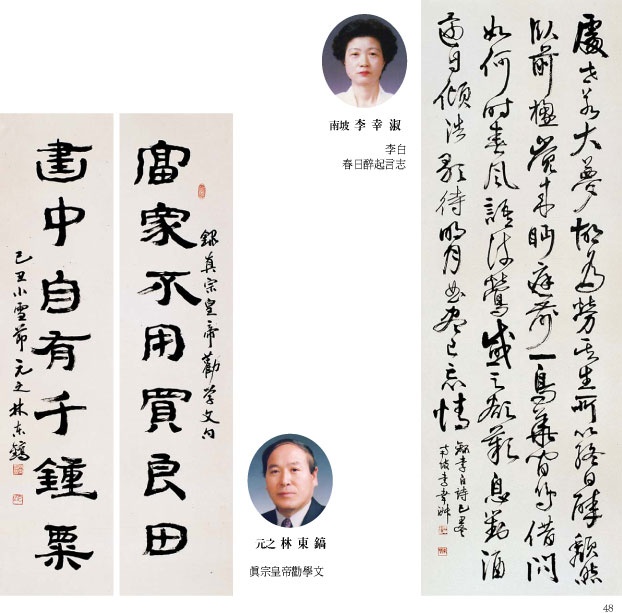 處世若大夢胡為勞其生所以終日醉頹然
臥前楹覺來眄庭前一鳥華間鳴借問
如何時春風語流鶯感之欲歎息對酒
還自傾浩歌待明月曲盡已忘情
錄李白詩己丑
南坡李幸淑
南坡 李幸淑
李白
春日醉起言志
富家不用買良田
錄真宗皇帝勸学文句
書中自有千鍾粟
己丑小雪節 元之 林東鎬
元之 林東鎬
眞宗皇帝勸學文
48